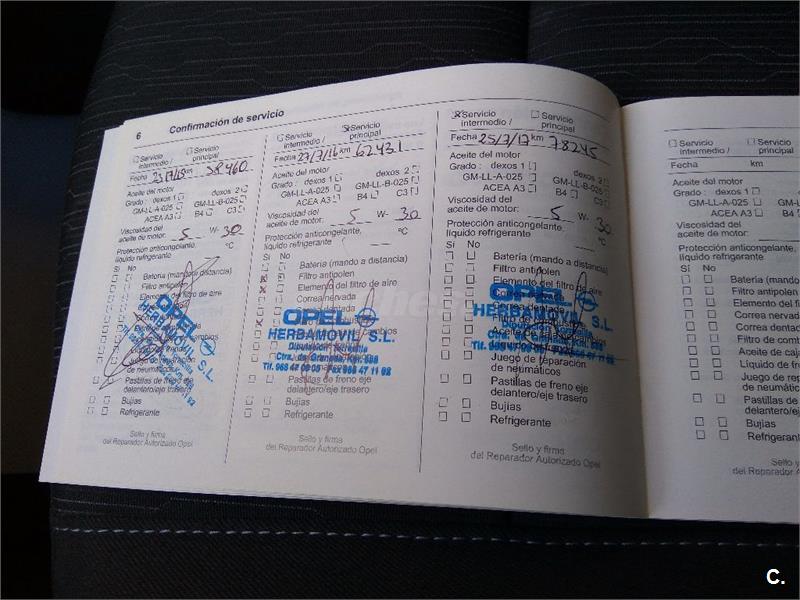 6 Confirmación de servicio
Servicio intermedio /
Servicio principal
Fecha 23/7/15 km 58460
Aceite del motor
Grado: dexos 1 dexos 2
GM-LL-A-025 GM-LL-B-025
ACEA A3 B4 C3
Viscosidad del
aceite de motor: 5 W- 30
Protección anticongelante,
líquido refrigerante °C
Sí No
Batería (mando a distancia)
Filtro antipolen
Elemento del filtro de aire
OPEL
HERBAMOVIL S.L.
de neumáticos
Pastillas de freno eje
delantero/eje trasero
Bujías
Refrigerante
Sello y firma
del Reparador Autorizado Opel
Servicio intermedio /
Servicio principal
Fecha 27/7/16 km 62431
Aceite del motor
Grado: dexos 1 dexos 2
GM-LL-A-025 GM-LL-B-025
ACEA A3 B4 C3
Viscosidad del
aceite de motor: 5 W- 30
Protección anticongelante,
líquido refrigerante °C
Sí No
Batería (mando a distancia)
Filtro antipolen
Elemento del filtro de aire
Correa nervada
OPEL
HERBAMOVIL S.L.
Ctra. de Granada, Km. 268
Tlf. 968 47 09 05 Fax 968 47 11 92
de neumáticos
Pastillas de freno eje
delantero/eje trasero
Bujías
Refrigerante
Sello y firma
del Reparador Autorizado Opel
Servicio intermedio /
Servicio principal
Fecha 25/7/17 km 78245
Aceite del motor
Grado: dexos 1 dexos 2
GM-LL-A-025 GM-LL-B-025
ACEA A3 B4 C3
Viscosidad del
aceite de motor: 5 W- 30
Protección anticongelante,
líquido refrigerante °C
Sí No
Batería (mando a distancia)
Filtro antipolen
Elemento del filtro de aire
OPEL
HERBAMOVIL S.L.
Juego de reparación
de neumáticos
Pastillas de freno eje
delantero/eje trasero
Bujías
Refrigerante
Sello y firma
del Reparador Autorizado Opel
Servicio intermedio /
Servicio principal
Fecha km
Aceite del motor
Grado: dexos 1
GM-LL-A-025
ACEA A3
Viscosidad del
aceite de motor:
Protección anticongelante,
líquido refrigerante
Sí No
Batería (mando
Filtro antipolen
Elemento del fi
Correa nervad
Correa dentad
Filtro de comb
Aceite de caj
Líquido de fr
Juego de rep
de neumátic
Pastillas de
delantero/e
Bujías
Refrigerant
Sello y
del Reparador
C.